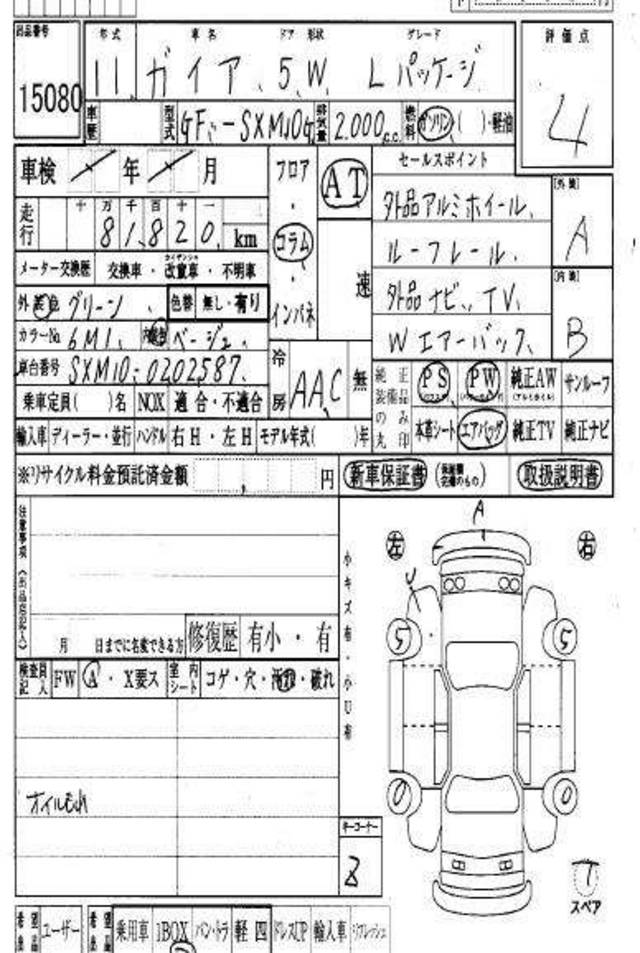 出品番号 年式 車名 ドア 形状 グレード 評価点
15080 11 ガイア 5W Lパッケージ 4
車歴 型式 GF-SXM10G 排気量 2.000 c.c. 燃料 ガソリン ( )・軽油
車検 年 月 フロア・コラム・インパネ AT 速 セールスポイント
十 万 千 百 十 一
走行 81,820 km
外品アルミホイール [外装] A
ルーフレール
外品ナビ、TV [内装] B
Wエアーバック
メーター交換歴 交換車・改ざん車・不明車
外装色 グリーン 色替 無し・有り
カラーNo. 6M1 内装色 ベージュ
車台番号 SXM10-0202587 冷房 AAC 無
純正装備品の丸み印 PS PW 純正AW サンルーフ
乗車定員( )名 NOX 適合・不適合
本革シート エアバッグ 純正TV 純正ナビ
輸入車 ディーラー・並行 ハンドル 右H・左H モデル年式( )年
※リサイクル料金預託済金額 円 新車保証書 取扱説明書
注意事項(出品店記入)
小キズ有・小U有
左 A 右
U
5 5
月 日までに名変できる方 修復歴 有小・有
検査員記入 FW A・X要ス 室内シート コゲ・穴・汚れ・破れ
0 0
オイルもれ
キーコーナー
スペア
ユーザー 乗用車 1BOX バン・トラ 軽四 ドレスUP 輸入車 リフレッシュ